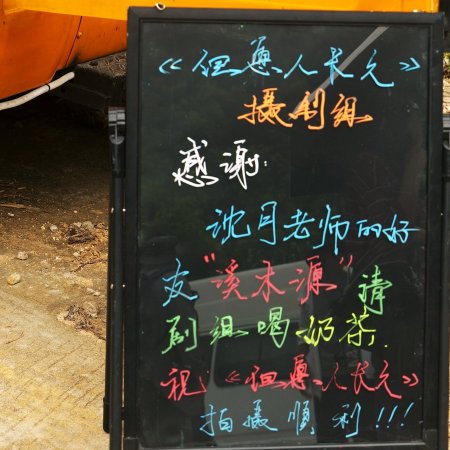 《但愿人长久》
摄制组
感谢:
沈月老师的好
友“溪木源”请
剧组喝奶茶.
祝《但愿人长久》
拍摄顺利!!!